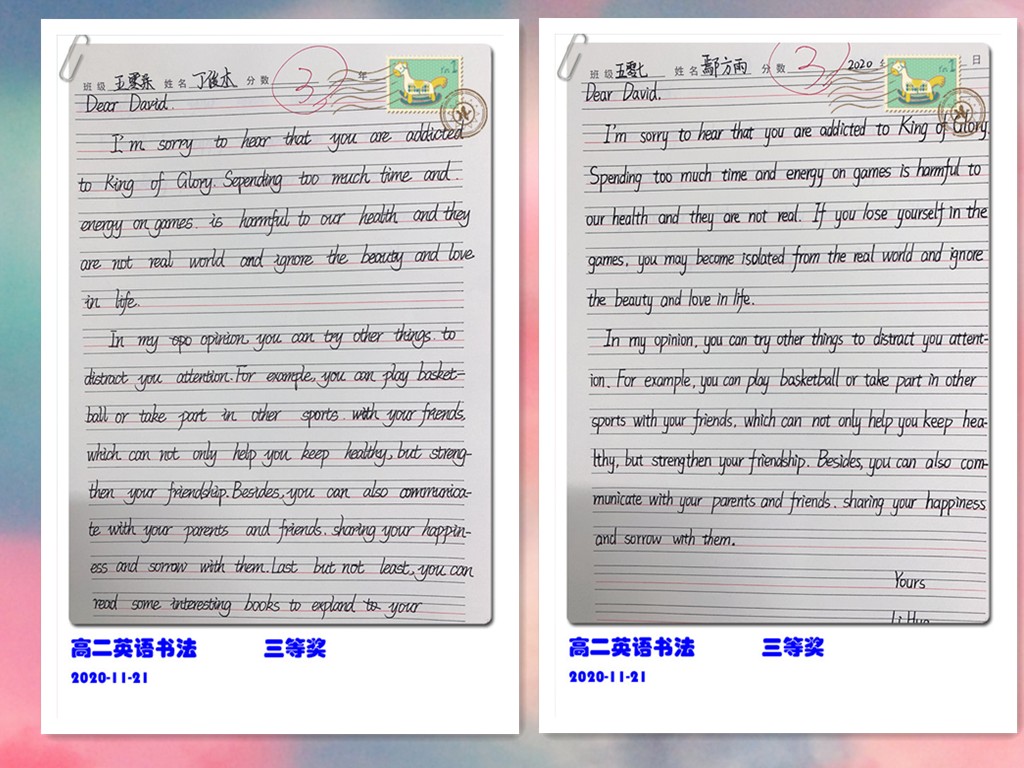 班级 五零 姓名 丁俊杰 分数 3 年
Dear David.
I'm sorry to hear that you are addicted
to King of Glory. Sepending too much time and
energy on games. is harmful to our health and they
are not real world and ignore the beauty and love
in life.
In my opo opinion, you can try other things. to
distract you attention. For example, you can play basket-
ball or take part in other sports. with your friends,
which can not only help you keep healthy, but streng-
then your friendship. Besides, you can also communica-
te with your parents and friends. sharing your happin-
ess and sorrow with them. Last but not least, you can
read some interesting books to expland to your
高二英语书法 三等奖
2020-11-21
班级 五零七 姓名 鄢方雨 分数 3 2020 年 日
Dear David.
I'm sorry to hear that you are addicted to King of Glory.
Spending too much time and energy on games is harmful to
our health and they are not real. If you lose yourself in the
games, you may become isolated from the real world and ignore
the beauty and love in life.
In my opinion, you can try other things to distract you attent-
ion. For example, you can play basketball or take part in other
sports with your friends, which can not only help you keep hea-
lthy, but strengthen your friendship. Besides, you can also com-
municate with your parents and friends. sharing your happiness
and sorrow with them.
Yours
Li Hua
高二英语书法 三等奖
2020-11-21